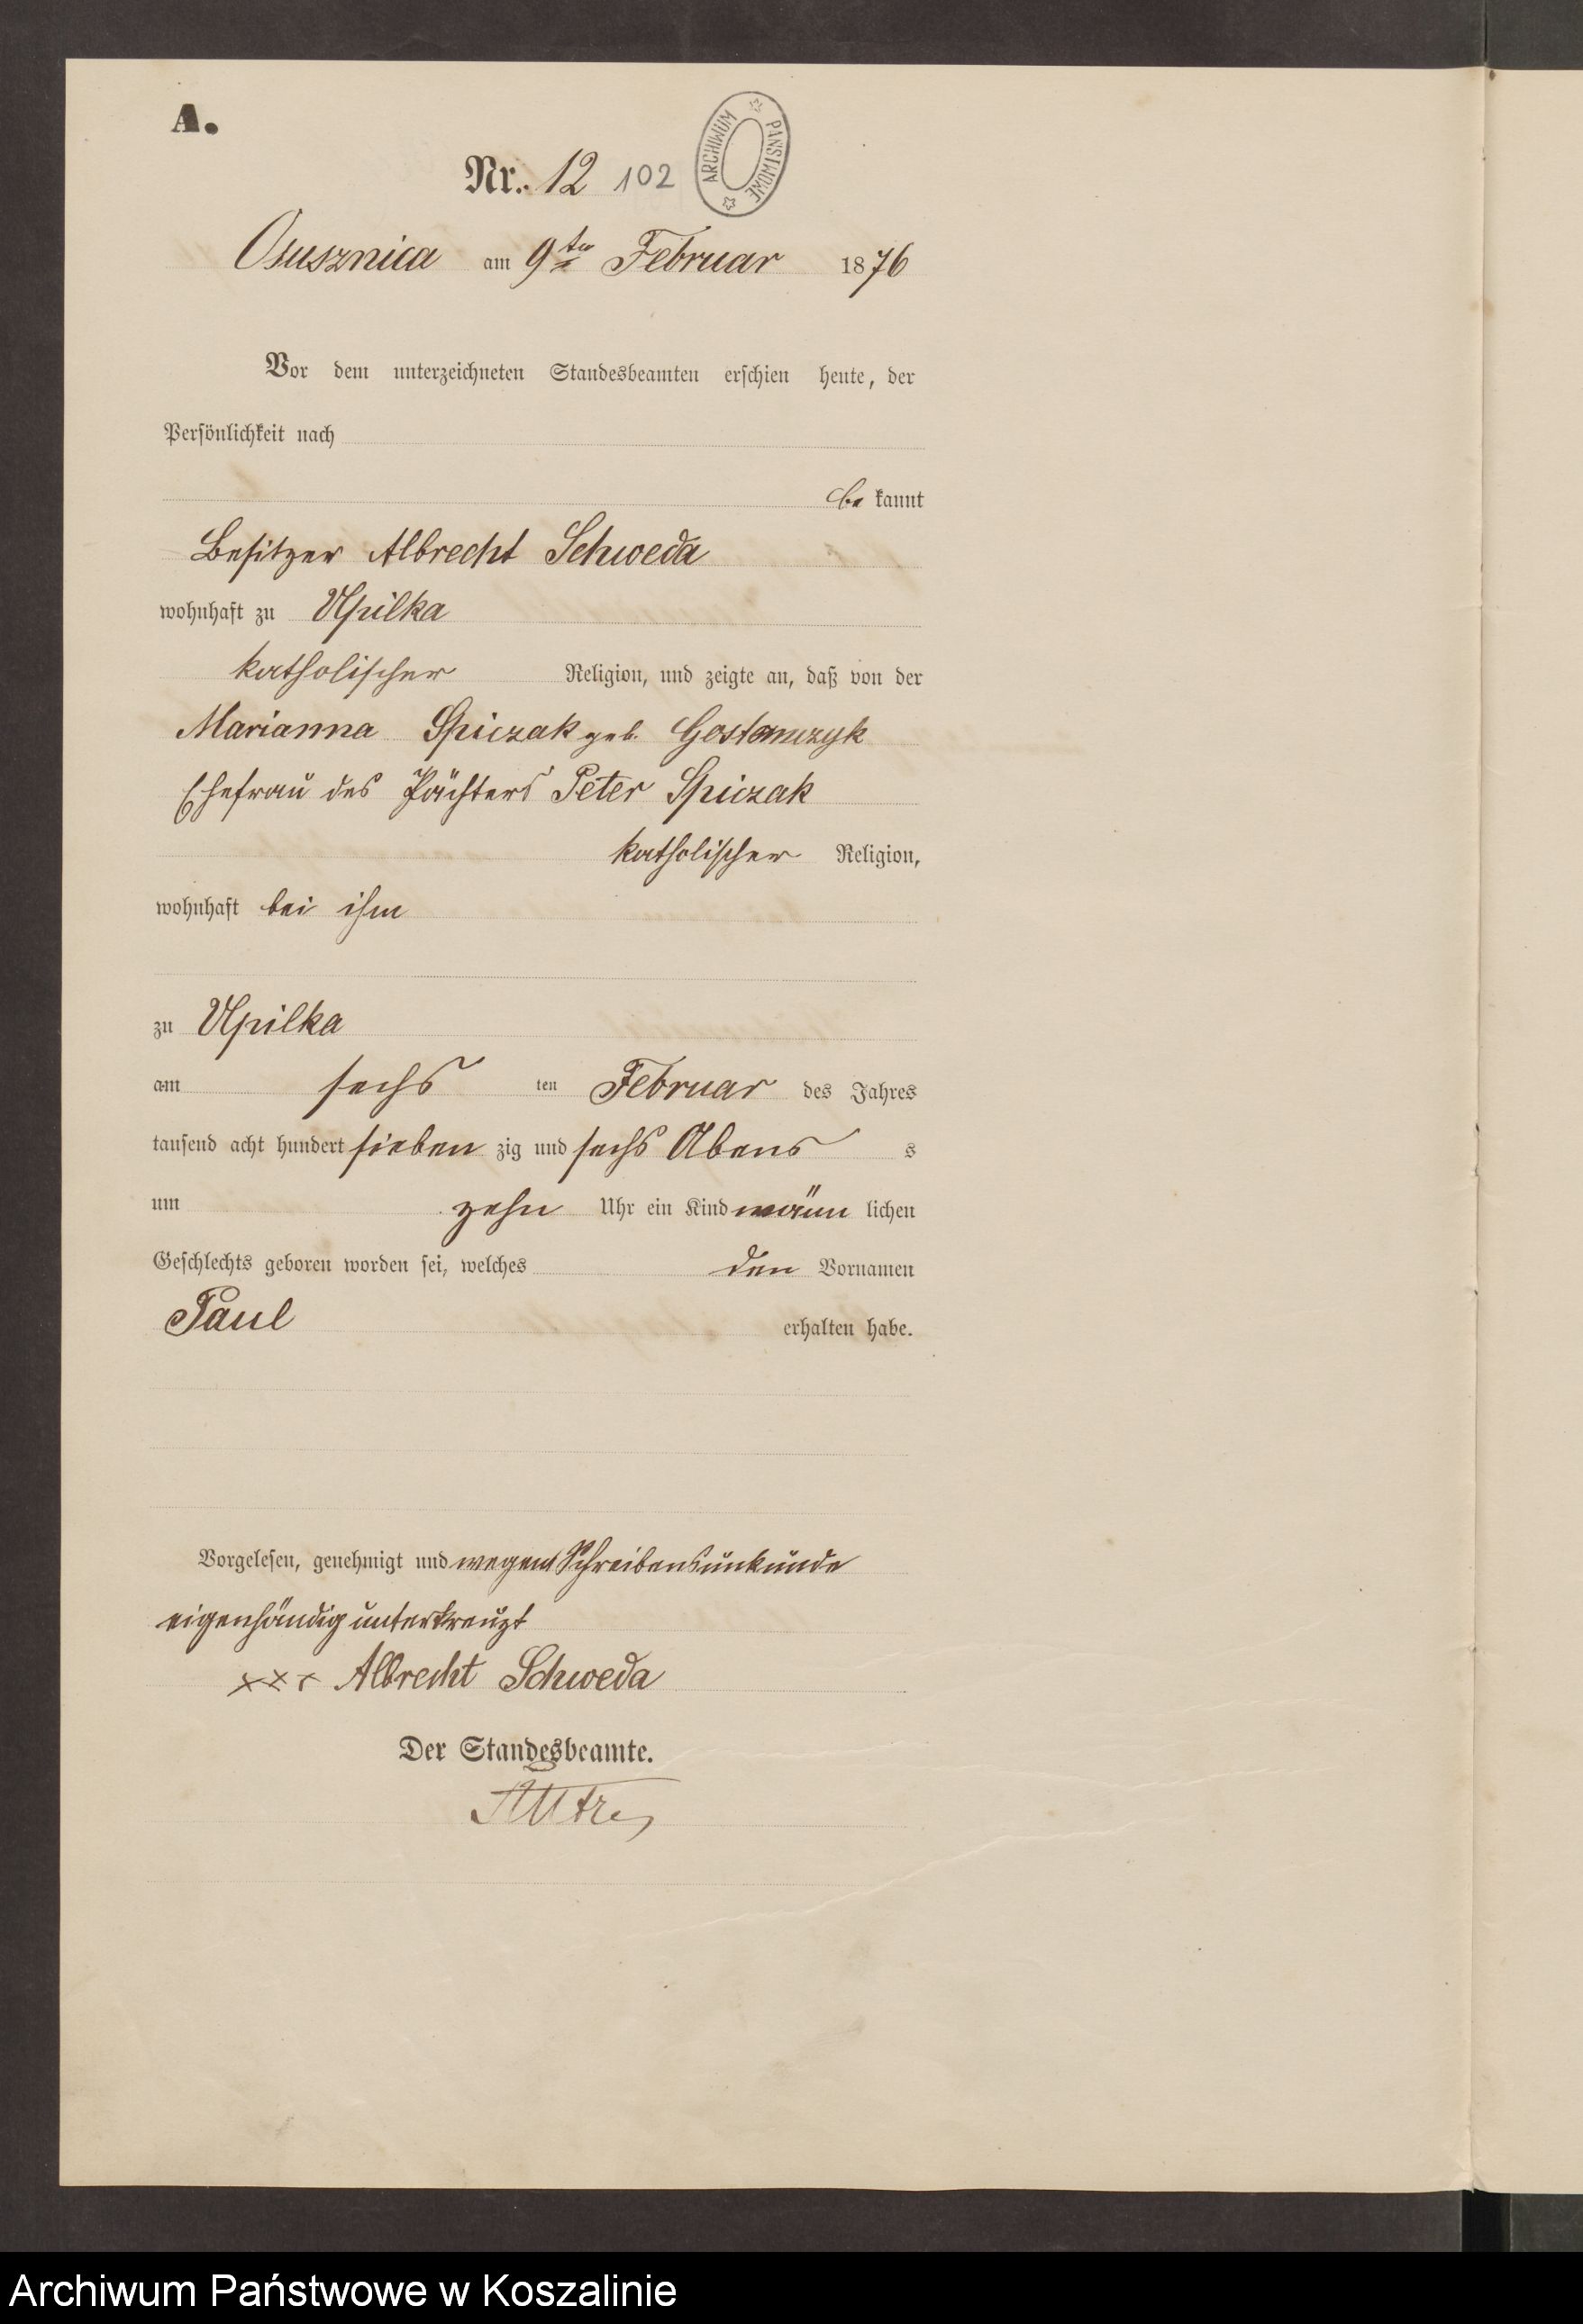 A.
Nr. 12 102
ARCHIWUM PAŃSTWOWE
Osusznica am 9ten Februar 1876
Vor dem unterzeichneten Standesbeamten erschien heute, der
Persönlichkeit nach
be kannt
Besitzer Albrecht Schweda
wohnhaft zu Upilka
katholischer Religion, und zeigte an, daß von der
Marianna Spiczak geb. Gostomczyk
Ehefrau des Pächters Peter Spiczak
katholischer Religion,
wohnhaft bei ihm
zu Upilka
am sechs ten Februar des Jahres
tausend acht hundert sieben zig und sechs Abens s
um zehn Uhr ein Kind männ lichen
Geschlechts geboren worden sei, welches den Vornamen
Paul erhalten habe.
Vorgelesen, genehmigt und wegen Schreibensunkunde
eigenhändig unterkreuzt
xxx Albrecht Schweda
Der Standesbeamte.
Archiwum Państwowe w Koszalinie